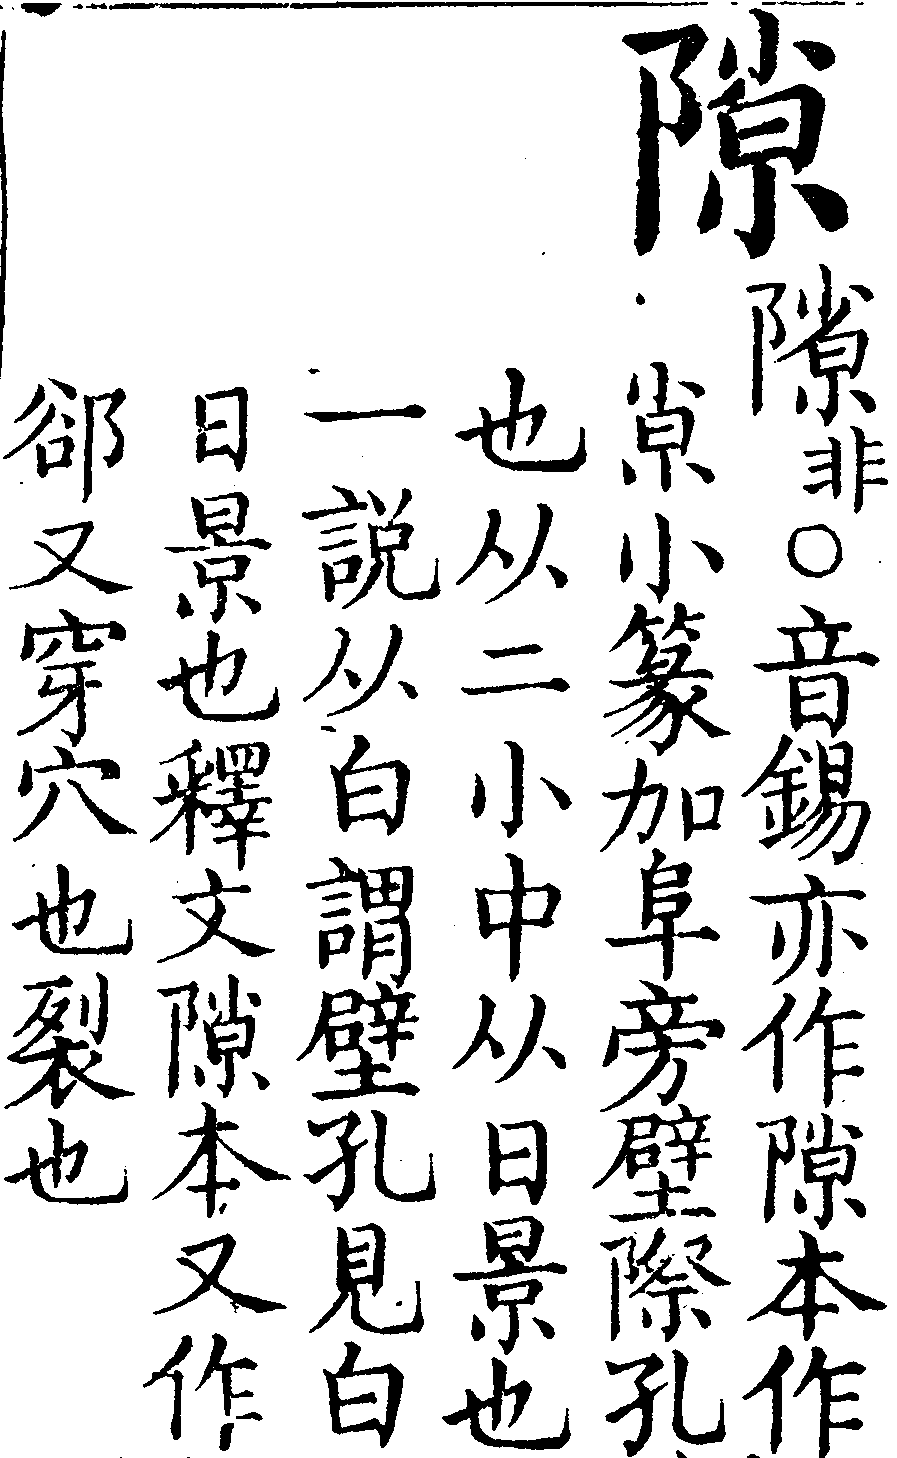 隙
隙非○音錫亦作隙本作
𡭴小篆加阜旁壁際孔
也从二小中从日景也
一説从白謂壁孔見白
日景也釋文隙本又作
郤又穿穴也裂也